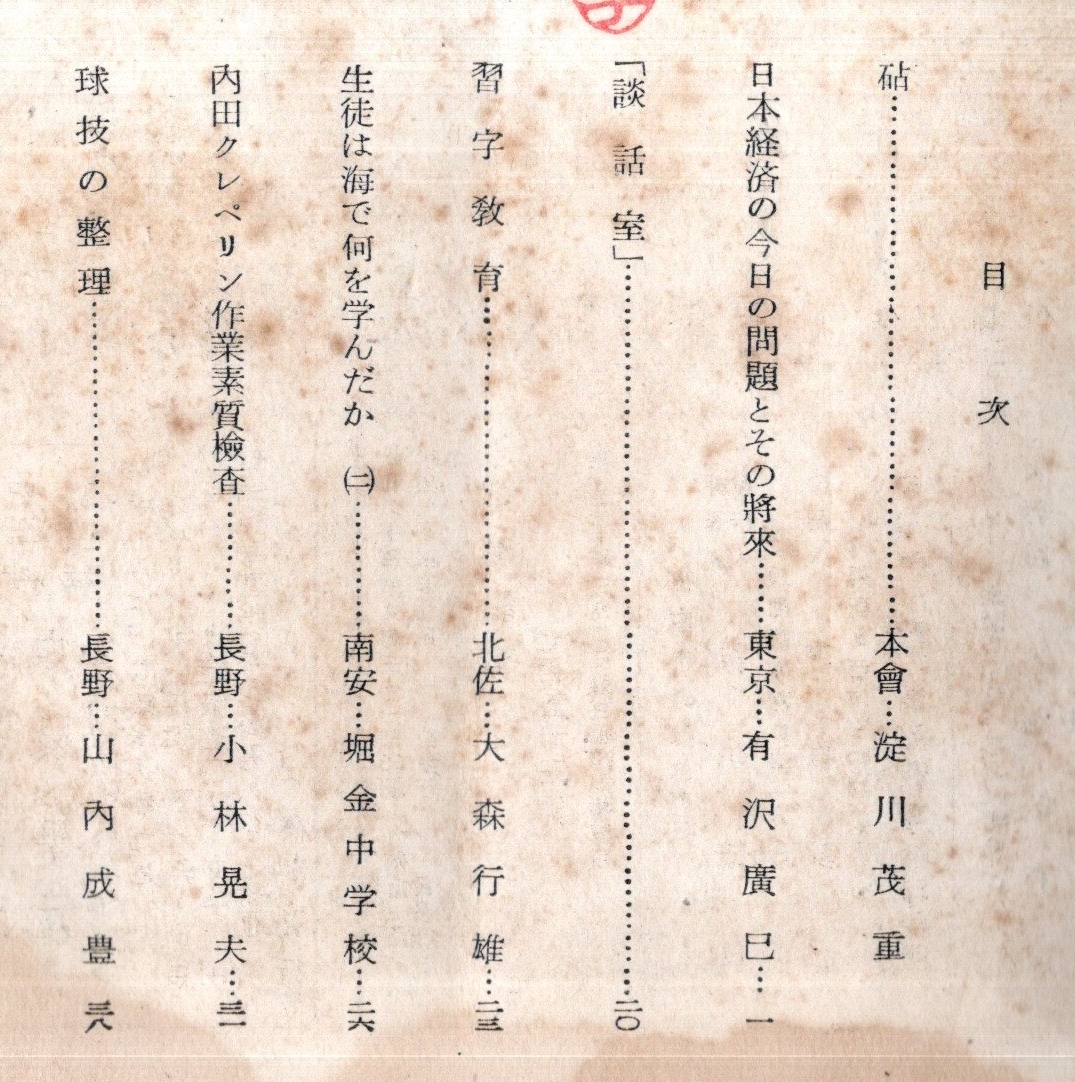 目次
砧……本會…淀川茂重
日本経済の今日の問題とその將來……東京…有沢廣巳…一
「談話室」……二〇
習字敎育……北佐…大森行雄…二三
生徒は海で何を学んだか ㈡……南安…堀金中学校…二六
内田クレペリン作業素質檢査……長野…小林晃夫…三一
球技の整理……長野…山内成豊 三八